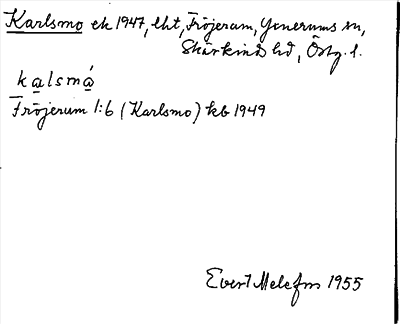 Karlsmo ek 1947, lht, Fröjerum, Yxnerums sn,
Skärkinds hd, Östg. l.
kalsmá
Fröjerum 1:6 (Karlsmo) kb 1949
Evert Melefors 1955